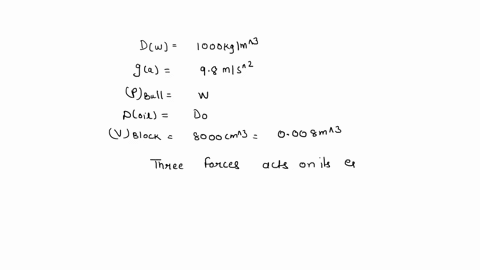 D(w) = 1000kg/m^3
g(a) = 9.8 m/s^2
(P)Ball = W
D(oil) = Do
(V)Block = 8000cm^3 = 0.008m^3
Three forces acts on its es